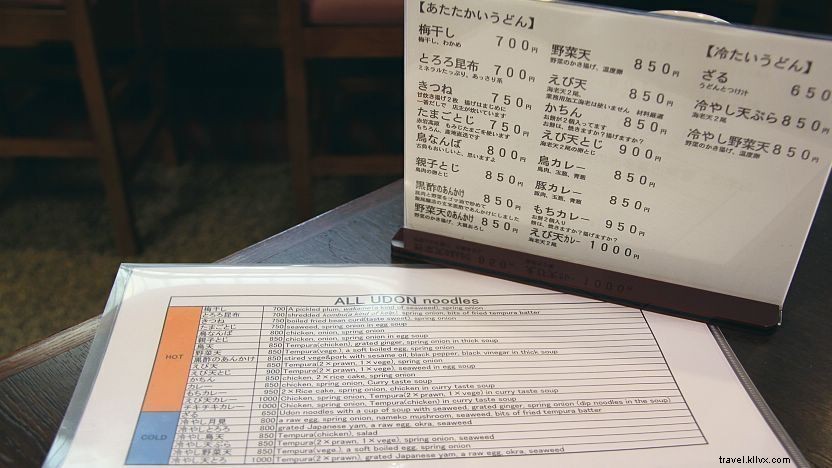 【あたたかいうどん】
梅干し 700円
梅干し、わかめ
とろろ昆布 700円
ミネラルたっぷり、あっさり系
きつね 750円
甘炊き揚げ2枚 揚げはまじめに
一番だしで 店主が炊いています
たまごとじ 750円
もちろん、産地直送です
鳥なんば 800円
古負もおいしいと、思いますよ
親子とじ 850円
鳥肉の卵とじ
黒酢のあんかけ 850円
野菜天のあんかけ 850円
野菜のかき揚げ、大根おろし
野菜天 850円
野菜のかき揚げ、温度卵
えび天 850円
海老天2尾、
業務用加工海老は使いません 材料厳選
かちん 850円
お餅が2個入ってます
お餅は、焼きますか?揚げますか?
えび天とじ 900円
海老天2尾の卵とじ
鳥カレー 850円
鳥肉、玉葱、青葱
豚カレー 850円
豚肉、玉葱、青葱
もちカレー 950円
お餅2個入り
餅は、焼きますか?揚げますか?
えび天カレー 1000円
海老天2尾
【冷たいうどん】
ざる 650
うどんとつけ汁
冷やし天ぷら 850円
海老天2尾、温度卵
冷やし野菜天 850円
野菜のかき揚げ、温度卵
ALL UDON noodles
HOT
梅干し 700 A pickled plum, wakame(a kind of seaweed), spring onion
とろろ昆布 700 shredded kombu(a kind of kelp), spring onion, bits of fried tempura batter
きつね 750 boiled fried bean curd(taste sweet), spring onion
たまごとじ 750 seaweed, spring onion in egg soup
鳥なんば 800 chicken, onion, spring onion
親子とじ 850 chicken, onion, spring onion in egg soup
鳥天 850 Tempura(chicken), grated ginger, spring onion in thick soup
野菜天 850 Tempura(vege.), a soft boiled egg, spring onion
黒酢のあんかけ 850 stired vege&pork with sesame oil, black pepper, black vinegar in thick soup
えび天 850 Tempura(2×prawn, 1×vege), spring onion
えび天とじ 900 Tempura(2×prawn, 1×vege), seaweed in egg soup
かちん 850 chicken, 2×rice cake, spring onion
カレー 850 chicken, onion, spring onion, Curry taste soup
もちカレー 950 2×Rice cake, spring onion, chicken in curry taste soup
えび天カレー 1000 Chicken, spring onion, Tempura(2×prawn, 1×vege) in curry taste soup
チキチキカレー 1000 Chicken, spring onion, Tempura(Chicken) in curry taste soup
COLD
ざる 650 Udon noodles with a cup of soup with seaweed, grated ginger, spring onion (dip noodles in the soup)
冷やし月見 800 a raw egg, spring onion, nameko mushroom, seaweed, bits of fried tempura batter
冷やしとろろ 800 grated Japanese yam, a raw egg, okra, seaweed
冷やし鳥天 850 Tempura(chicken), salad
冷やし天ぷら 850 Tempura(2×prawn, 1×vege), spring onion
冷やし野菜天 850 Tempura(vege.), a soft boiled egg, spring onion
冷やし天とろ 1000 Tempura(2×prawn), grated Japanese yam, a raw egg, okra, seaweed
travel.kllvx.com